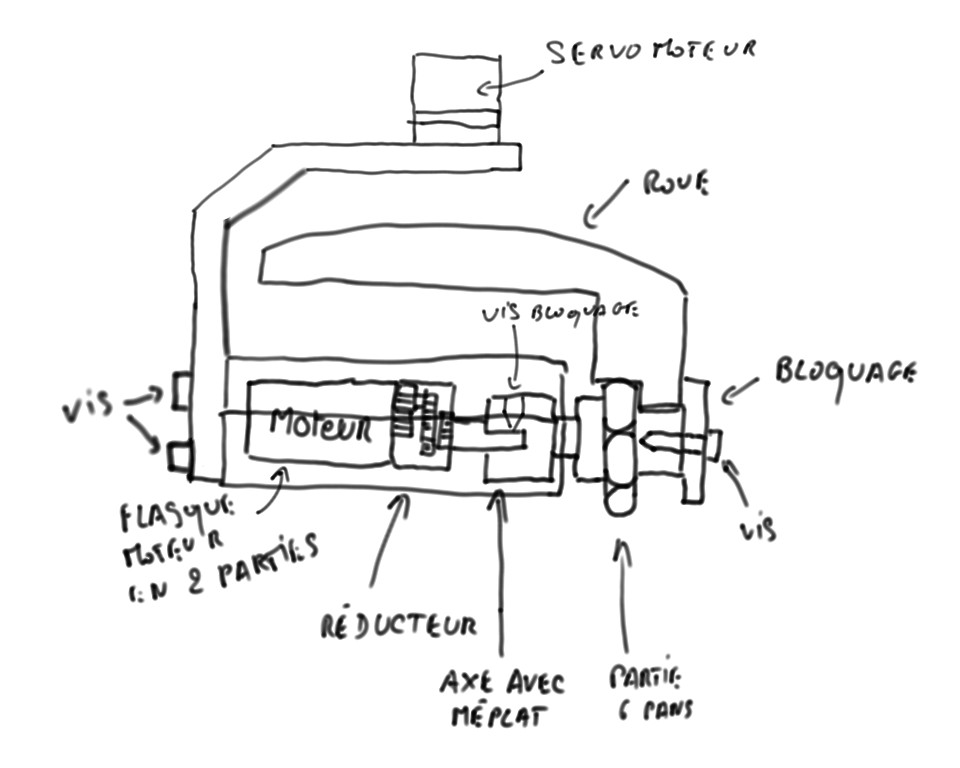 SERVO MOTEUR
ROUE
VIS BLOQUAGE
BLOQUAGE
VIS
MOTEUR
VIS
FLASQUE
MOTEUR
EN 2 PARTIES
RÉDUCTEUR
AXE AVEC
MÉPLAT
PARTIE
6 PANS